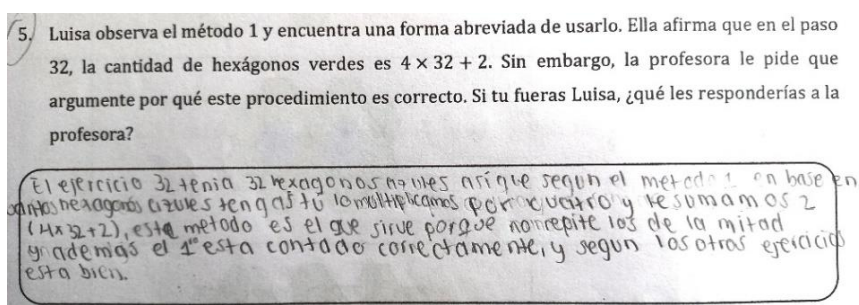 5. Luisa observa el método 1 y encuentra una forma abreviada de usarlo. Ella afirma que en el paso
32, la cantidad de hexágonos verdes es 4 × 32 + 2. Sin embargo, la profesora le pide que
argumente por qué este procedimiento es correcto. Si tu fueras Luisa, ¿qué les responderías a la
profesora?
El ejercicio 32 tenia 32 hexagonos azules asi que segun el metodo 1 en base en
cuantos hexagonos azules tengas tu lo multiplicamos por cuatro y le sumamos 2
(4x32+2), este metodo es el que sirve porque no repite los de la mitad
y ademas el 1° esta contado correctamente, y segun los otros ejercicios
esta bien.